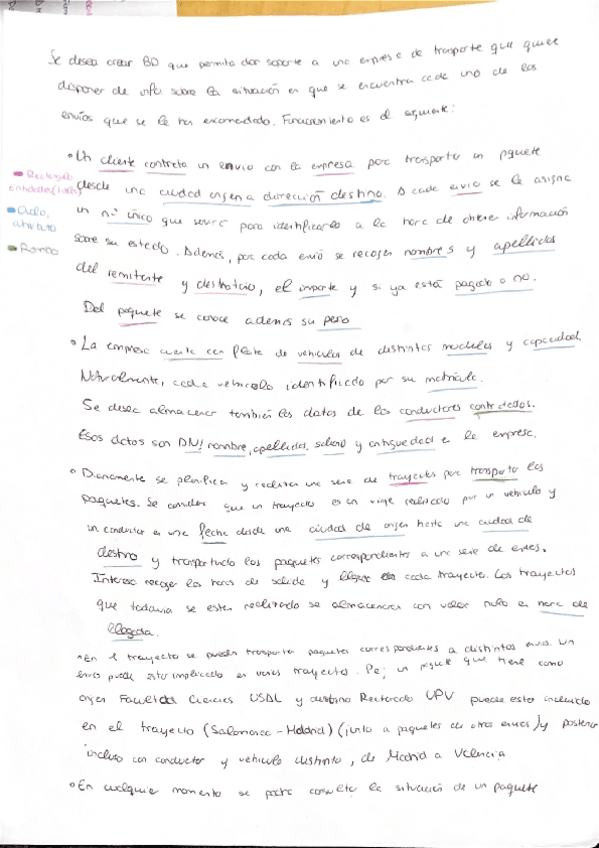 Se desea crear BD que permita dar soporte a una empresa de transporte que quiere
disponer de info sobre la situación en que se encuentra cada uno de los
envíos que se le han encomendado. Funcionamiento es el siguiente:
• Un cliente contrata un envio con la empresa para transportar un paquete
Rectangulo
entidades (tablas)
desde una ciudad origen a dirección destino. A cada envio se le asigna
Ovalo,
atributo
un nº único que servirá para identificarlo a la hora de obtener información
Rombo
sobre su estado. Además, por cada envio se recogen nombres y apellidos
del remitente y destinatario, el importe y si ya está pagado o no.
Del paquete se conoce además su peso
• La empresa cuenta con flota de vehiculos de distintos modelos y capacidad.
Naturalmente, cada vehículo identificado por su matrícula.
Se desea almacenar también los datos de los conductores contratados.
Esos datos son DNI, nombre, apellidos, salario y antiguedad en la empresa.
• Diariamente se planifican y realizan una serie de trayectos para transportar los
paquetes. Se considera que un trayecto es un viaje realizado por un vehiculo y
un conductor en una fecha desde una ciudad de origen hasta una ciudad de
destino y transportando los paquetes correspondientes a una serie de envios.
Interesa recoger las horas de salida y llegada de cada trayecto. Los trayectos
que todavia se esten realizando se almacenan con valor nulo en hora de
llegada.
• En el trayecto se pueden transportar paquetes correspondientes a distintos envios. Un
envio puede estar implicado en varios trayectos. Pej un paquete que tiene como
origen Facultad Ciencias USAL y destino Rectorado UPV puede estar incluido
en el trayecto (Salamanca - Madrid) (junto a paquetes de otros envios) y posterior
incluso con conductor y vehiculo distinto, de Madrid a Valencia
• En cualquier momento se podra consultar la situación de un paquete